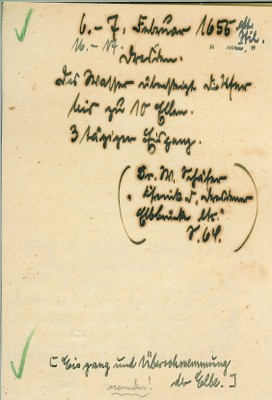 6. - 7. Februar 1655 alt. Stil.
16. - 17. " " neu. "
Dresden.
Das Wasser übersteigt die Ufer
bis zu 10 Ellen.
3 tägiger Eisgang.
(Dr. W. Schäfer
"Chronik d. Dresdner
Elbbrücke etc."
S. 64.)
[Eisgang und Überschwemmung
der Elbe.]